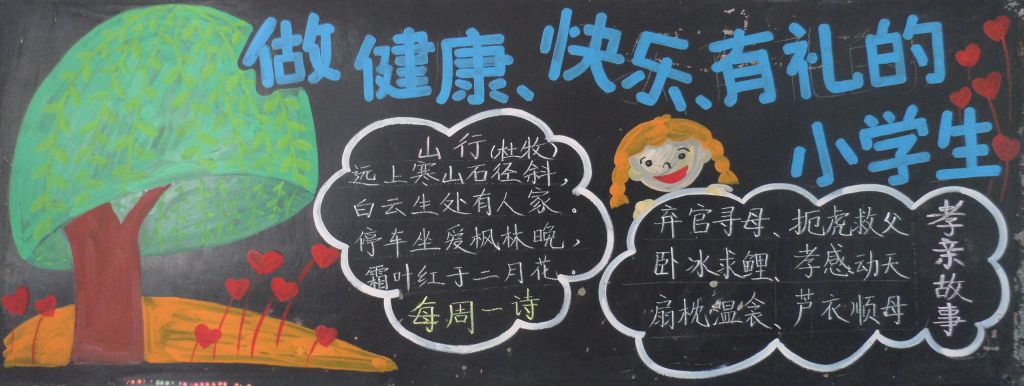 做健康、快乐、有礼的
小学生
山行(杜牧)
远上寒山石径斜，
白云生处有人家。
停车坐爱枫林晚，
霜叶红于二月花。
每周一诗
孝亲故事
弃官寻母、扼虎救父
卧冰求鲤、孝感动天
扇枕温衾、芦衣顺母